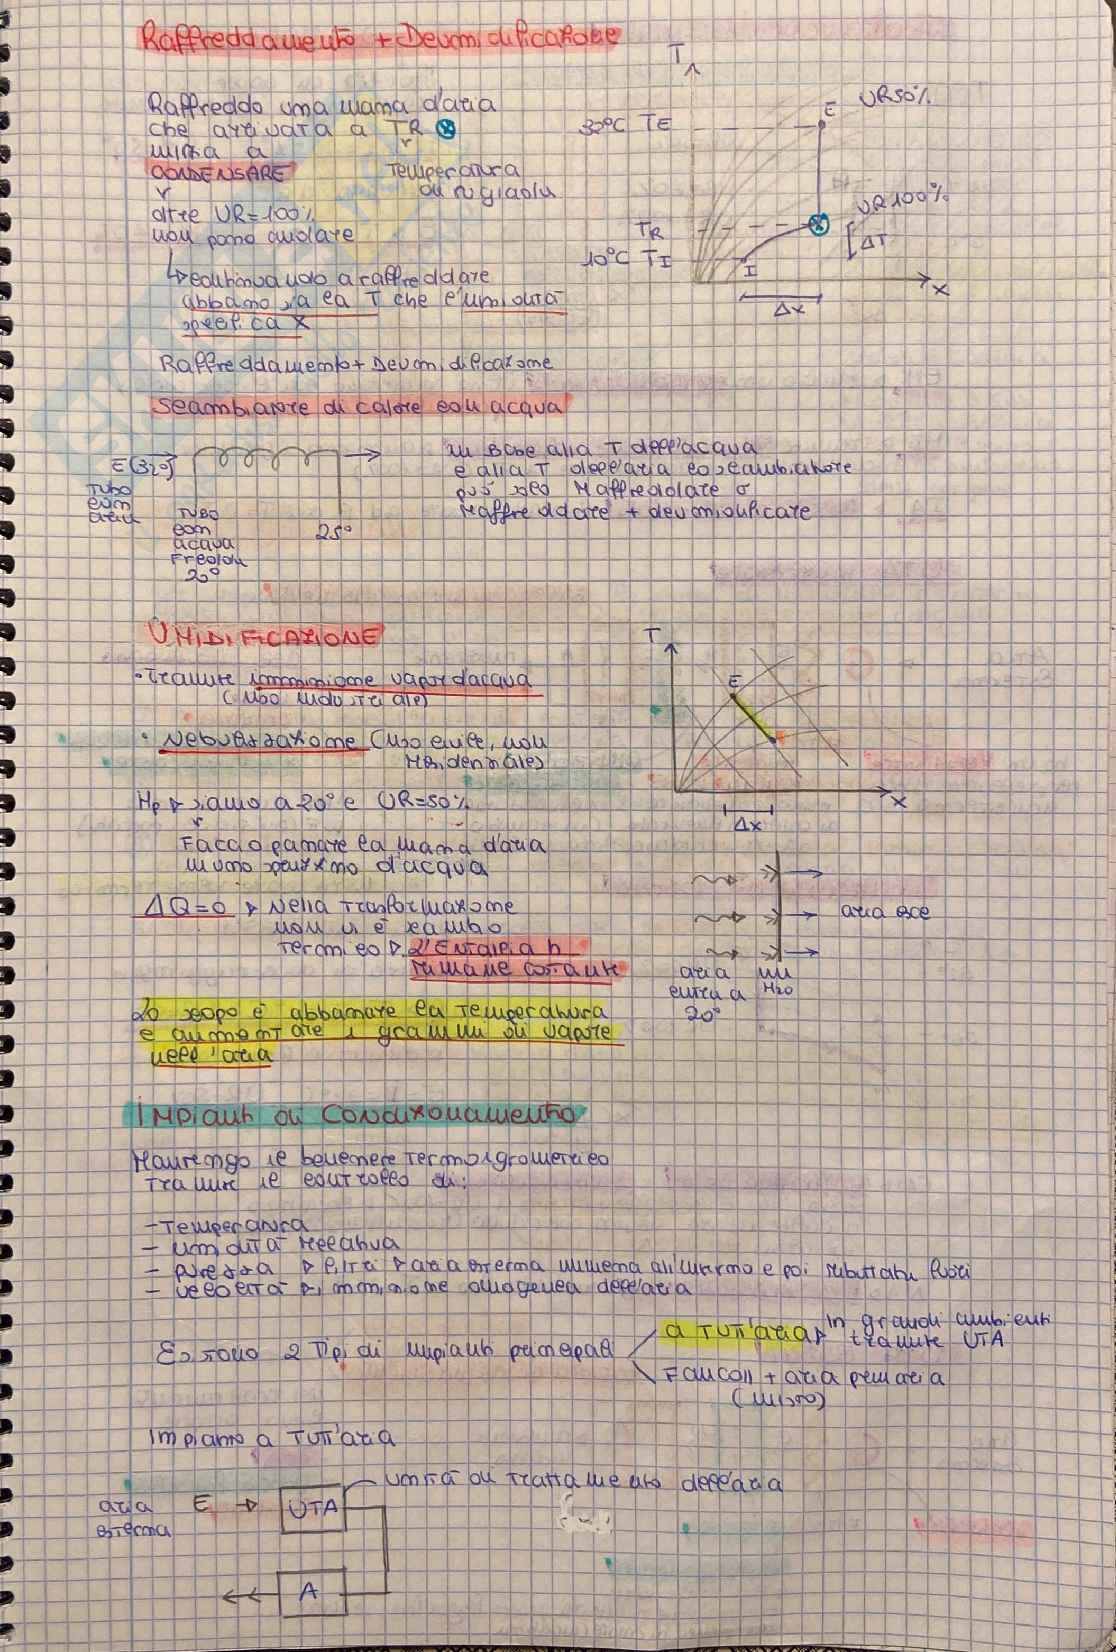 Raffreddamento + Deumidificazione
Raffreddo una massa d'aria
che arrivata a TR
inizia a
CONDENSARE
Temperatura
di rugiada
oltre UR=100%
non posso andare
continuando a raffreddare
abbasso sia la T che l'umidità
specifica x
Raffreddamento + Deumidificazione
T
E
UR 50%
32°C TE
UR 100%
TR
ΔT
10°C TI
I
x
Δx
Scambiatore di calore con acqua
E(32°)
Tubo
con
aria
Tubo
con
acqua
Fredda
20°
25°
in Base alla T dell'acqua
e alla T dell'aria lo scambiatore
può solo raffreddare o
raffreddare + deumidificare
UMIDIFICAZIONE
• Tramite immissione vapore d'acqua
(uso industriale)
• Nebulizzazione (uso civile, non
residenziale)
Hp siamo a 20° e UR=50%
Faccio passare la massa d'aria
in uno spruzzino d'acqua
ΔQ=0 Nella Trasformazione
non vi è scambio
termico L'Entalpia h
rimane costante
Lo scopo è abbassare la Temperatura
e aumentare i grammi di vapore
nell'aria
T
E
x
Δx
aria esce
aria
entra a
20°
H2O
Impianti di Condizionamento
Mantengo il benessere Termoigrometrico
tramite il controllo di:
- Temperatura
- umidità relativa
- purezza filtri aria esterna immessa all'interno e poi ributtata fuori
- velocità immissione omogenea dell'aria
Esistono 2 Tipi di impianti principali
a TUTT'aria in grandi ambienti
tramite UTA
Fancoil + aria primaria
(misto)
Impianto a TUTT'aria
unità di trattamento dell'aria
aria
esterna
E
UTA
A